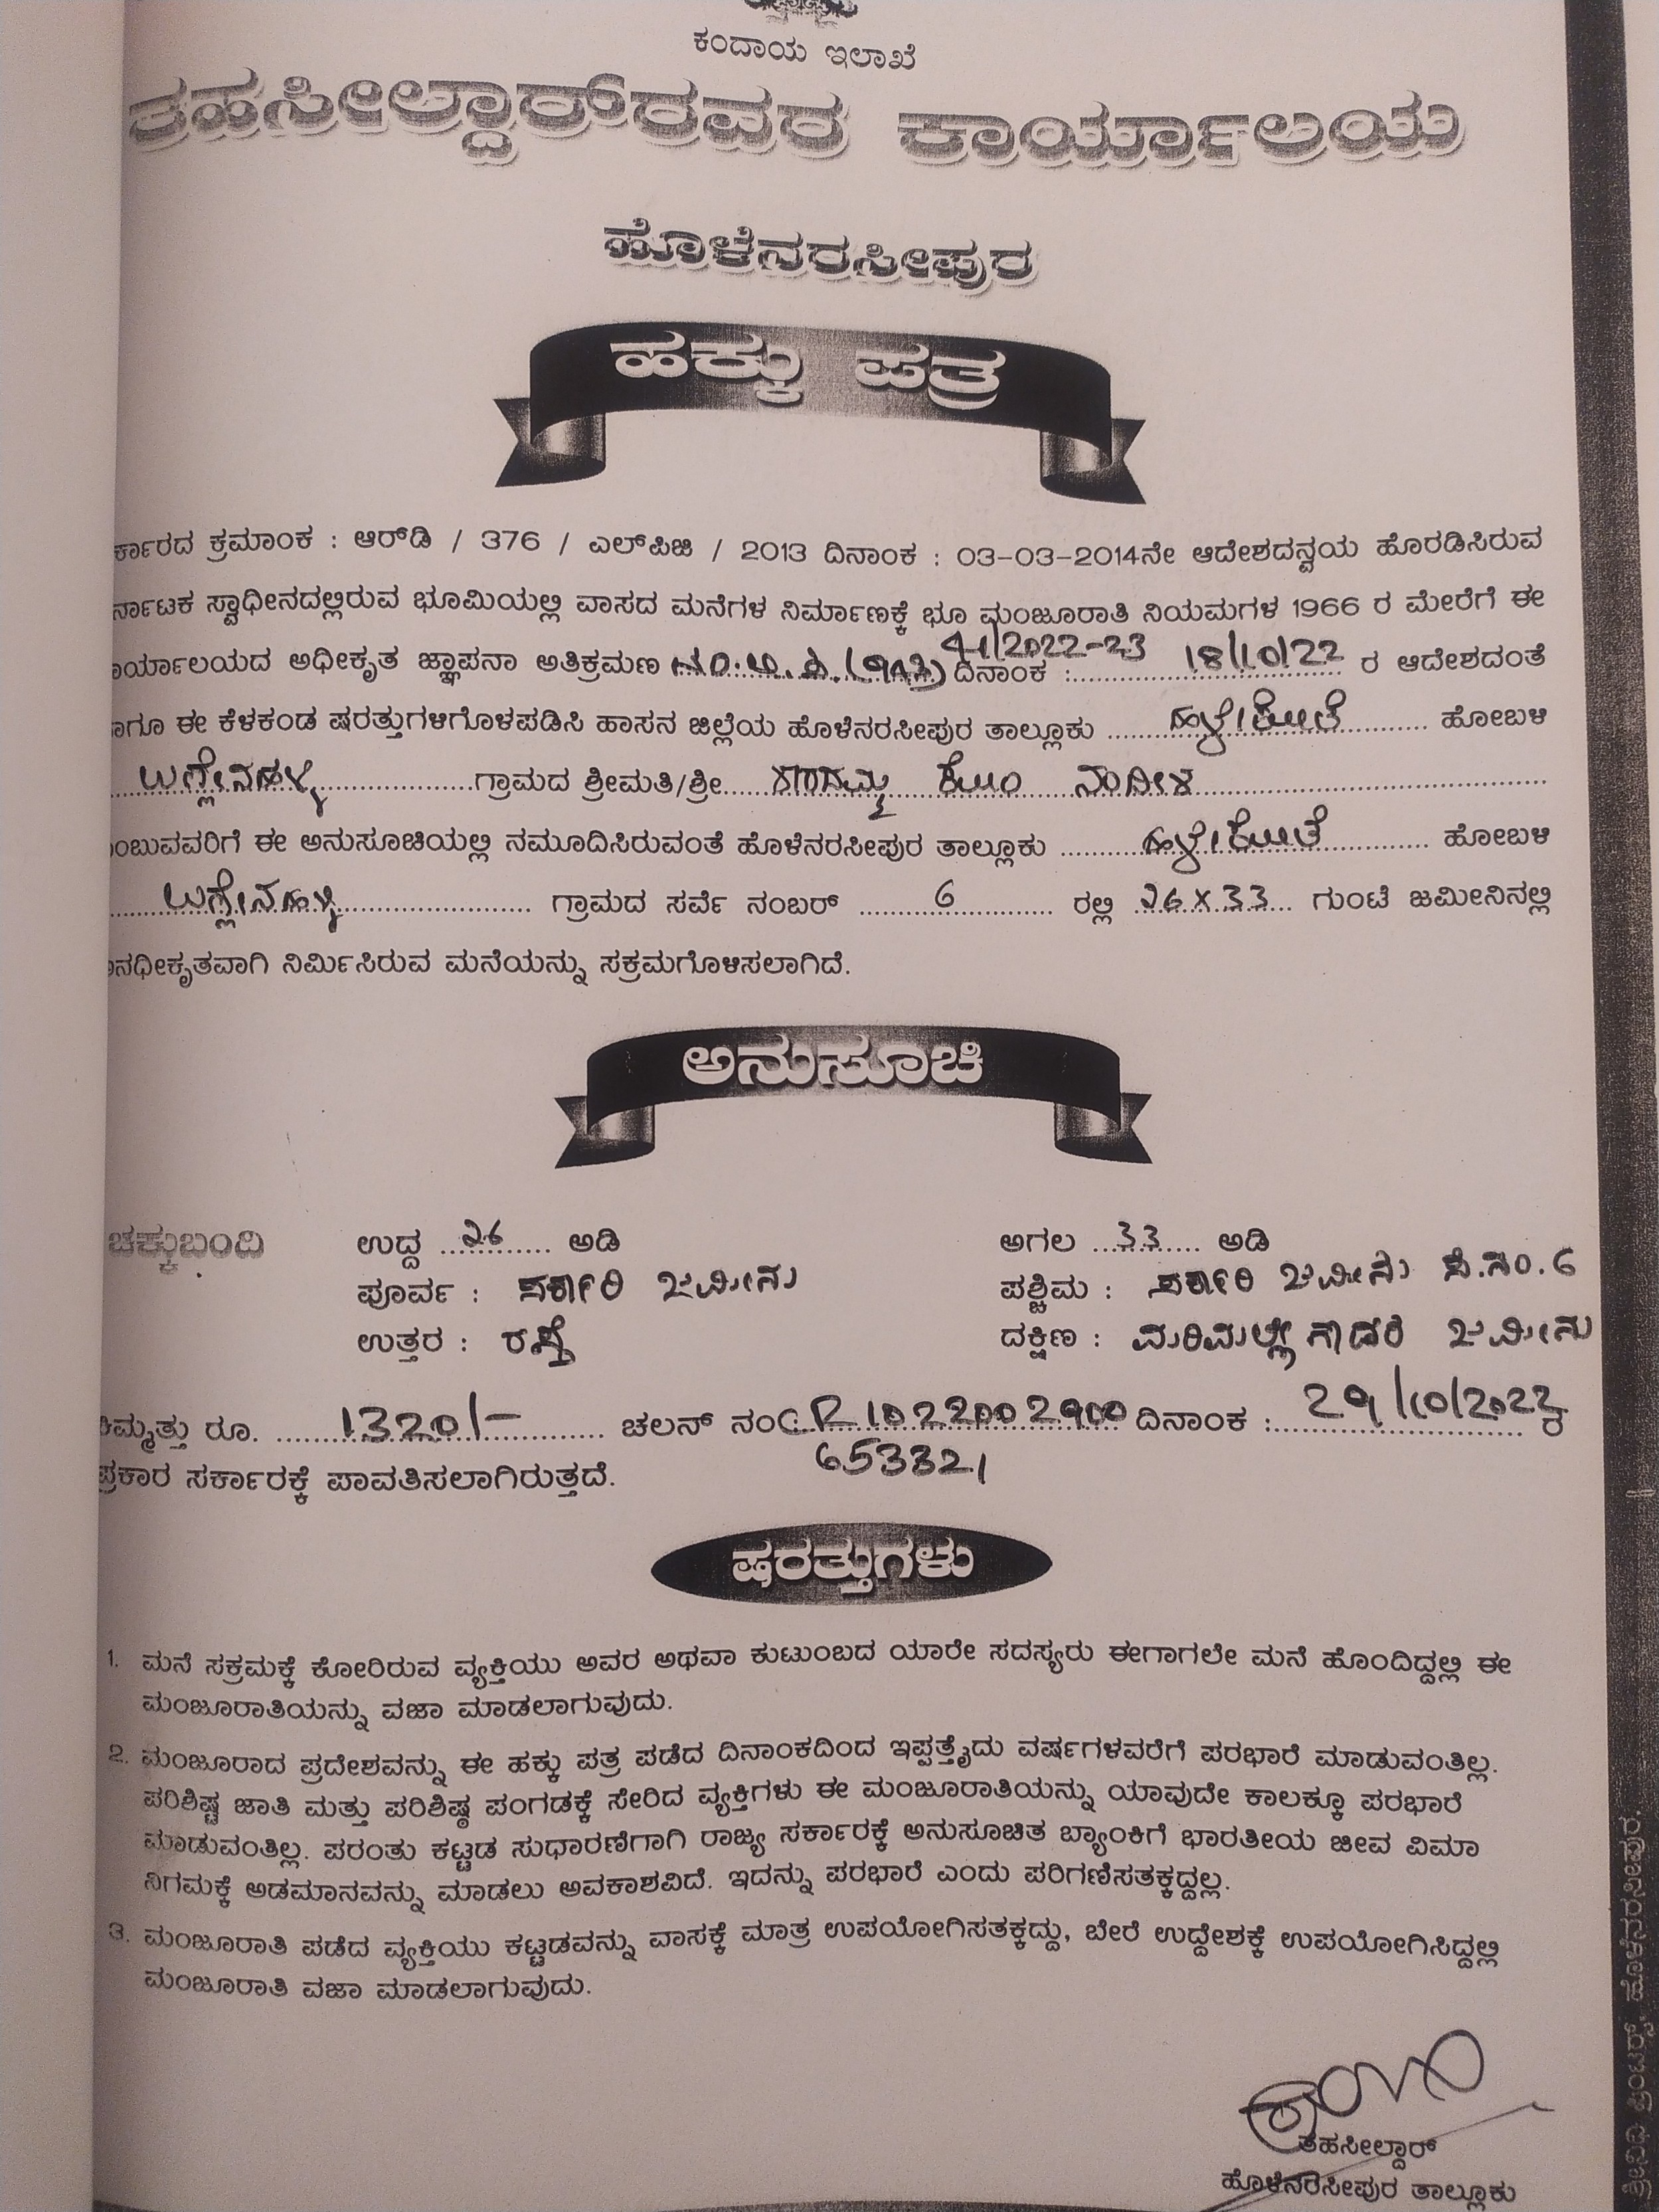 ಕಂದಾಯ ಇಲಾಖೆ
ತಹಸೀಲ್ದಾರ್‌ರವರ ಕಾರ್ಯಾಲಯ
ಹೊಳೆನರಸೀಪುರ
ಹಕ್ಕು ಪತ್ರ
ರ್ಕಾರದ ಕ್ರಮಾಂಕ : ಆರ್‌ಡಿ / 376 / ಎಲ್‌ಪಿಜಿ / 2013 ದಿನಾಂಕ : 03-03-2014ನೇ ಆದೇಶದನ್ವಯ ಹೊರಡಿಸಿರುವ
ರ್ನಾಟಕ ಸ್ವಾಧೀನದಲ್ಲಿರುವ ಭೂಮಿಯಲ್ಲಿ ವಾಸದ ಮನೆಗಳ ನಿರ್ಮಾಣಕ್ಕೆ ಭೂ ಮಂಜೂರಾತಿ ನಿಯಮಗಳ 1966 ರ ಮೇರೆಗೆ ಈ
ರ್ಯಾಲಯದ ಅಧೀಕೃತ ಜ್ಞಾಪನಾ ಅತಿಕ್ರಮಣ 41/2022-23 ದಿನಾಂಕ : 18/10/22 ರ ಆದೇಶದಂತೆ
ಗೂ ಈ ಕೆಳಕಂಡ ಷರತ್ತುಗಳಿಗೊಳಪಡಿಸಿ ಹಾಸನ ಜಿಲ್ಲೆಯ ಹೊಳೆನರಸೀಪುರ ತಾಲ್ಲೂಕು ಹಳ್ಳಿಕೋಟೆ ಹೋಬಳಿ
ಗ್ರಾಮದ ಶ್ರೀಮತಿ/ಶ್ರೀ ಕೋಂ
ಂಬುವವರಿಗೆ ಈ ಅನುಸೂಚಿಯಲ್ಲಿ ನಮೂದಿಸಿರುವಂತೆ ಹೊಳೆನರಸೀಪುರ ತಾಲ್ಲೂಕು ಹಳ್ಳಿಕೋಟೆ ಹೋಬಳಿ
ಗ್ರಾಮದ ಸರ್ವೆ ನಂಬರ್ 6 ರಲ್ಲಿ 26 X 33 ಗುಂಟೆ ಜಮೀನಿನಲ್ಲಿ
ನಧೀಕೃತವಾಗಿ ನಿರ್ಮಿಸಿರುವ ಮನೆಯನ್ನು ಸಕ್ರಮಗೊಳಿಸಲಾಗಿದೆ.
ಅನುಸೂಚಿ
ಚಕ್ಕುಬಂದಿ ಉದ್ದ 26 ಅಡಿ ಅಗಲ 33 ಅಡಿ
ಪೂರ್ವ : ಸರ್ಕಾರಿ ಜಮೀನು ಪಶ್ಚಿಮ : ಸರ್ಕಾರಿ ಜಮೀನು ಸ.ನಂ. 6
ಉತ್ತರ : ರಸ್ತೆ ದಕ್ಷಿಣ : ಮರಿಮಲ್ಲೇಗೌಡರ ಜಮೀನು
ಕಿಮ್ಮತ್ತು ರೂ. 1320/- ಚಲನ್ ನಂ CR 1022002900 ದಿನಾಂಕ : 29/10/2022 ರ
653321
ಪ್ರಕಾರ ಸರ್ಕಾರಕ್ಕೆ ಪಾವತಿಸಲಾಗಿರುತ್ತದೆ.
ಷರತ್ತುಗಳು
1. ಮನೆ ಸಕ್ರಮಕ್ಕೆ ಕೋರಿರುವ ವ್ಯಕ್ತಿಯು ಅವರ ಅಥವಾ ಕುಟುಂಬದ ಯಾರೇ ಸದಸ್ಯರು ಈಗಾಗಲೇ ಮನೆ ಹೊಂದಿದ್ದಲ್ಲಿ ಈ
ಮಂಜೂರಾತಿಯನ್ನು ವಜಾ ಮಾಡಲಾಗುವುದು.
2. ಮಂಜೂರಾದ ಪ್ರದೇಶವನ್ನು ಈ ಹಕ್ಕು ಪತ್ರ ಪಡೆದ ದಿನಾಂಕದಿಂದ ಇಪ್ಪತ್ತೈದು ವರ್ಷಗಳವರೆಗೆ ಪರಭಾರೆ ಮಾಡುವಂತಿಲ್ಲ.
ಪರಿಶಿಷ್ಟ ಜಾತಿ ಮತ್ತು ಪರಿಶಿಷ್ಠ ಪಂಗಡಕ್ಕೆ ಸೇರಿದ ವ್ಯಕ್ತಿಗಳು ಈ ಮಂಜೂರಾತಿಯನ್ನು ಯಾವುದೇ ಕಾಲಕ್ಕೂ ಪರಭಾರೆ
ಮಾಡುವಂತಿಲ್ಲ. ಪರಂತು ಕಟ್ಟಡ ಸುಧಾರಣೆಗಾಗಿ ರಾಜ್ಯ ಸರ್ಕಾರಕ್ಕೆ ಅನುಸೂಚಿತ ಬ್ಯಾಂಕಿಗೆ ಭಾರತೀಯ ಜೀವ ವಿಮಾ
ನಿಗಮಕ್ಕೆ ಅಡಮಾನವನ್ನು ಮಾಡಲು ಅವಕಾಶವಿದೆ. ಇದನ್ನು ಪರಭಾರೆ ಎಂದು ಪರಿಗಣಿಸತಕ್ಕದ್ದಲ್ಲ.
3. ಮಂಜೂರಾತಿ ಪಡೆದ ವ್ಯಕ್ತಿಯು ಕಟ್ಟಡವನ್ನು ವಾಸಕ್ಕೆ ಮಾತ್ರ ಉಪಯೋಗಿಸತಕ್ಕದ್ದು, ಬೇರೆ ಉದ್ದೇಶಕ್ಕೆ ಉಪಯೋಗಿಸಿದ್ದಲ್ಲಿ
ಮಂಜೂರಾತಿ ವಜಾ ಮಾಡಲಾಗುವುದು.
ತಹಸೀಲ್ದಾರ್
ಹೊಳೆನರಸೀಪುರ ತಾಲ್ಲೂಕು
ಶ್ರೀನಿಧಿ ಪ್ರಿಂಟರ್ಸ್, ಹೊಳೆನರಸೀಪುರ.